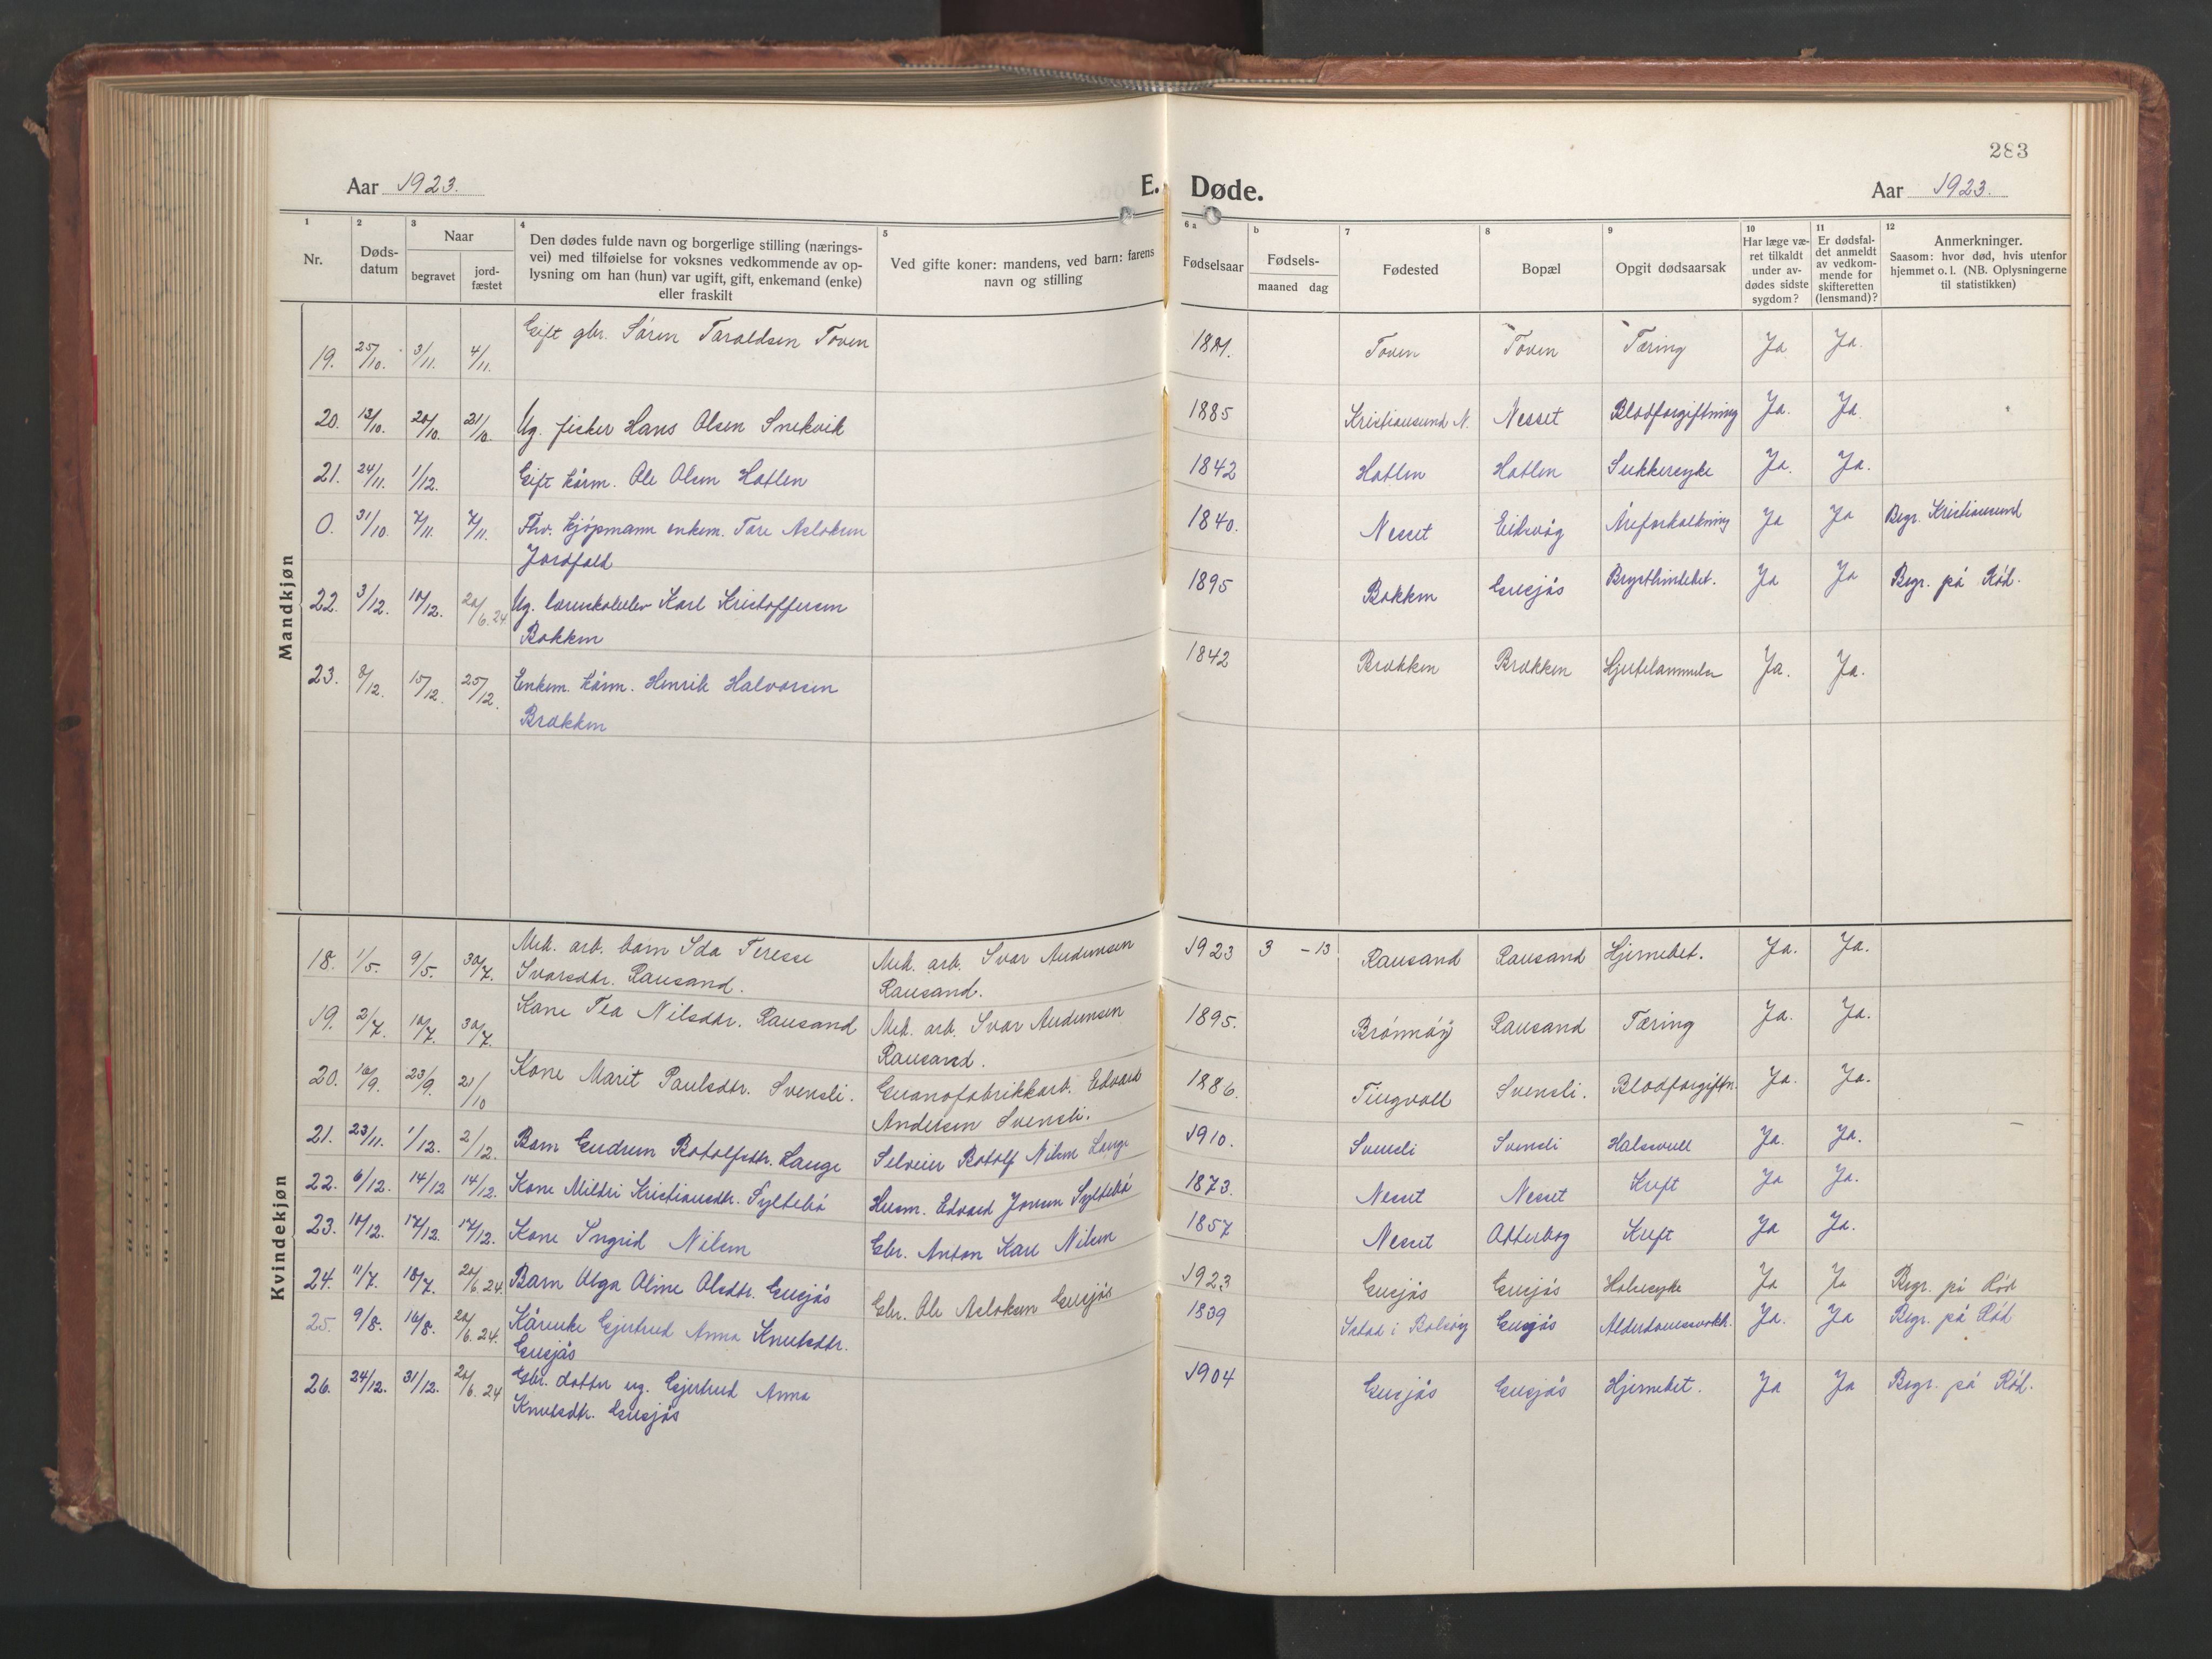 283
Aar 1923.
E. Døde.
Aar 1923.
1 2 3 4 5 6 a b 7 8 9 10 11 12
Nr.
Døds-
datum
Naar
begravet
jord-
fæstet
Den dødes fulde navn og borgerlige stilling (nærings-
vei) med tilføielse for voksnes vedkommende av op-
lysning om han (hun) var ugift, gift, enkemand (enke)
eller fraskilt
Ved gifte koner: mandens, ved barn: farens
navn og stilling
Fødselsaar
Fødsels-
maaned dag
Fødested
Bopæl
Opgit dødsaarsak
Har læge væ-
ret tilkaldt
under av-
dødes sidste
sygdom?
Er dødsfal-
det anmeldt
av vedkom-
mende for
skifteretten
(lensmand)?
Anmerkninger.
Saasom: hvor død, hvis utenfor
hjemmet o. l. (NB. Oplysningerne
til statistikken)
Mandkjøn
19. 25/10. 3/11. 4/11. Gift gbr. Søren Taraldsen Toven 1881. Toven Toven Tæring Ja Ja.
20. 13/10. 20/10. 21/10. Ug. fisker Hans Olsen Snekvik 1885 Kristiansund N. Nesset Blodforgiftning Ja. Ja.
21. 24/11. 1/12. Gift kårm. Ole Olsen Hatlen 1842 Hatlen Hatlen Sukkersyke Ja. Ja.
0. 31/10. 7/11. 7/11. Fhv. kjøpmann enkem. Tore Aslaksen 1840. Nesset Eidsvåg Åreforkalkning Ja Ja Begr. Kristiansund
Jordfald
22. 3/12. 10/12. 20/6. 24. Ug. læreskoleelev Karl Kristoffersen 1895 Bakken Gusjås Brysthindebet. Ja Ja Begr. på Rød.
Bakken
23. 8/12. 15/12. 25/12. Enkem. kårm. Henrik Halvorsen 1842 Brakken Brakken Hjertelammelse Ja. Ja.
Brakken
Kvindekjøn
18. 1/5. 9/5. 30/7. Mek. arb. barn Ida Terese Mek. arb. Ivar Audunsen 1923 3 - 13 Rausand Rausand Hjernebet. Ja. Ja.
Ivarsdtr. Rausand. Rausand.
19. 2/7. 10/7. 30/7. Kone Tea Nilsdtr. Rausand Mek. arb. Ivar Audunsen 1895. Brønnøy Rausand Tæring Ja. Ja.
Rausand.
20. 16/9. 23/9. 21/10 Kone Marit Paulsdtr. Svensli. Guanofabrikkarb. Edvard 1886. Tingvoll Svensli. Blodforgiftn. Ja. Ja.
Andersen Svensli.
21. 23/11. 1/12. 2/12. Barn Gudrun Botolfsdtr. Lange Selveier Botolf Nilsen Lange 1910. Svensli Svensli Halssvull Ja. Ja.
22. 6/12. 14/12 14/12. Kone Mildri Kristiansdtr. Syltebø Husm. Edvard Jonsen Syltebø 1873. Nesset Nesset Kreft Ja Ja.
23. 10/12. 17/12. 17/12. Kone Ingrid Nilsen Gbr. Anton Karl Nilsen 1857 Nesset Otterbog Kreft Ja Ja.
24. 11/7. 18/7. 20/6. 24. Barn Olga Oline Olsdtr. Gusjås Gbr. Ole Aslaksen Gusjås 1923 Gusjås Gusjås Halssyke Ja Ja Begr. på Rød
25. 9/8. 16/8. 20/6. 24. Kårenke Gjertrud Anna Knutsdtr. 1839 Istad i Bolsøy Gusjås Alderdomssvakh. Ja. Ja Begr. på Rød
Gusjås
26. 24/12. 31/12. 20/6. 24 Gbr. datter ug. Gjertrud Anna 1904 Gusjås Gusjås Hjernebet. Ja Ja Begr. på Rød.
Knutsdtr. Gusjås